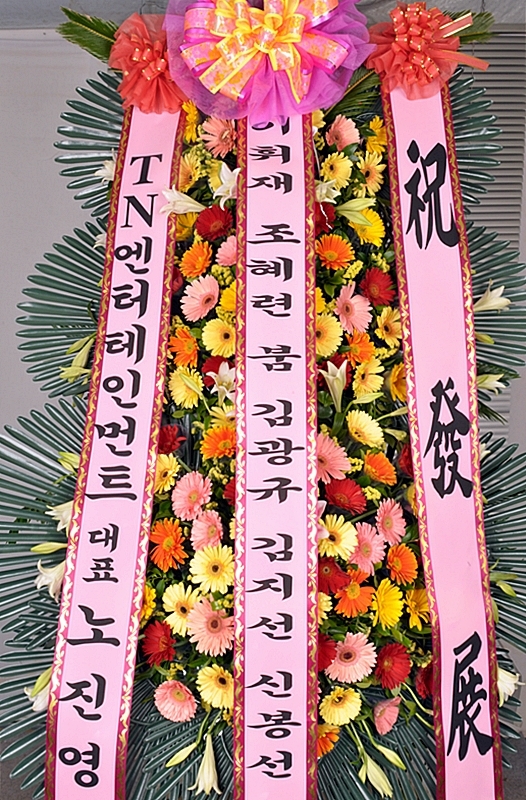 祝 發 展
이휘재 조혜련 붐 김광규 김지선 신봉선
TN엔터테인먼트 대표 노진영